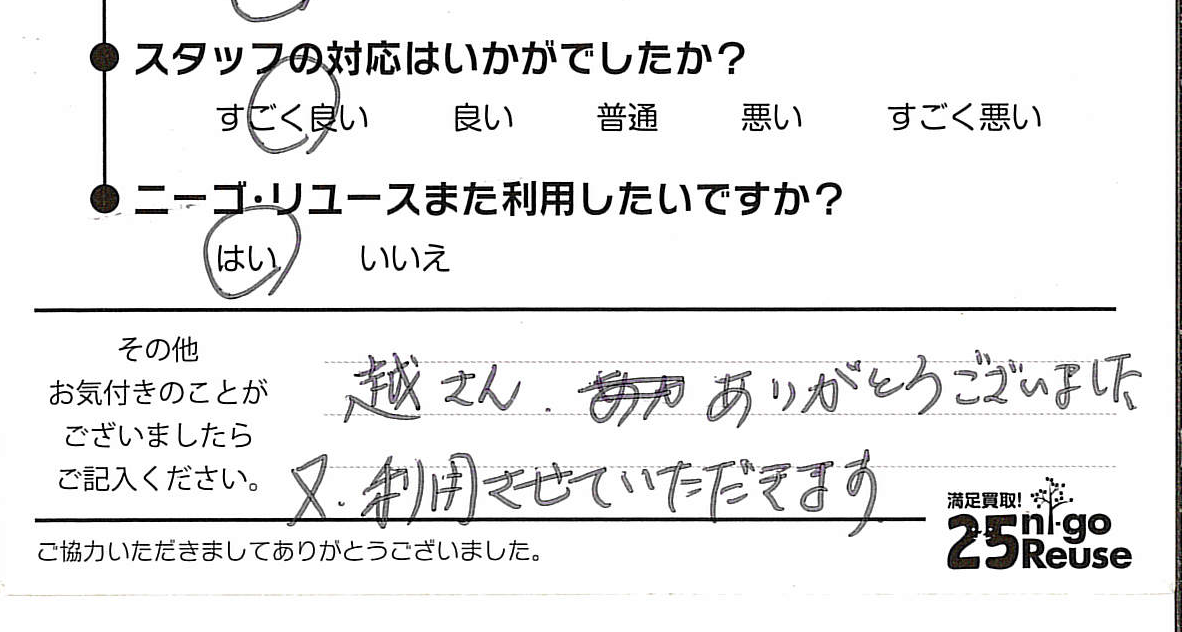 スタッフの対応はいかがでしたか?
すごく良い 良い 普通 悪い すごく悪い
ニーゴ・リユースまた利用したいですか?
はい いいえ
その他
お気付きのことが
ございましたら
ご記入ください。
越さん. ありがとうございました
又.利用させていただきます
満足買取!
25 ni-go
Reuse
ご協力いただきましてありがとうございました。